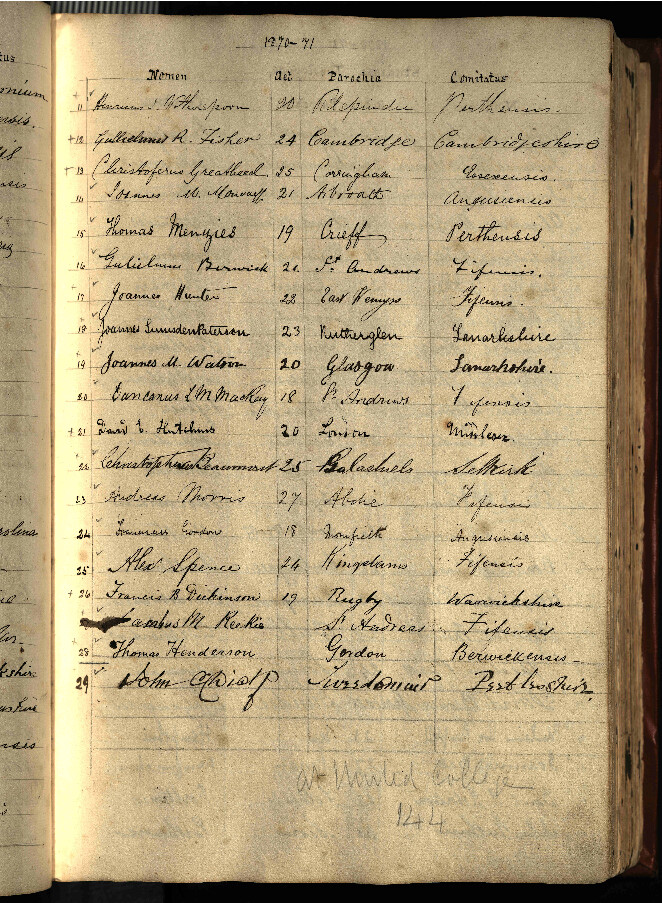 1870-71
Nomen Aet Parochia Comitatus
11 Henricus J. 20 Perthensis.
+12 Gulielmus R. Fisher 24 Cambridge Cambridgeshire
+13 Christoferus Greatheed 25 Corringham Essexensis.
14 Joannes M. 21 Arbroath Angusiensis
15 Thomas Menzies 19 Crieff Perthensis
16 Gulielmus Berwick 21 St Andrews Fifensis.
+17 Joannes Hunter 22 East Wemyss Fifensis.
+18 Joannes Lumsden Paterson 23 Rutherglen Lanarkshire
+19 Joannes M. Watson 20 Glasgow Lanarkshire.
20 MacKay 18 St Andrews Fifensis
+21 David E. Hutchins 20 London
22 Christopher Beaumont 25 Selkirk
23 Andreas Morris 27 Abdie Fifensis
24 Gordon 18 Angusiensis
25 Alex Spence 24 Kingsbarns Fifensis
+26 Francis B Dickinson 19 Rugby Warwickshire
M St Andreas Fifensis
28 Thomas Henderson Gordon Berwickensis
29 John
at United College
144